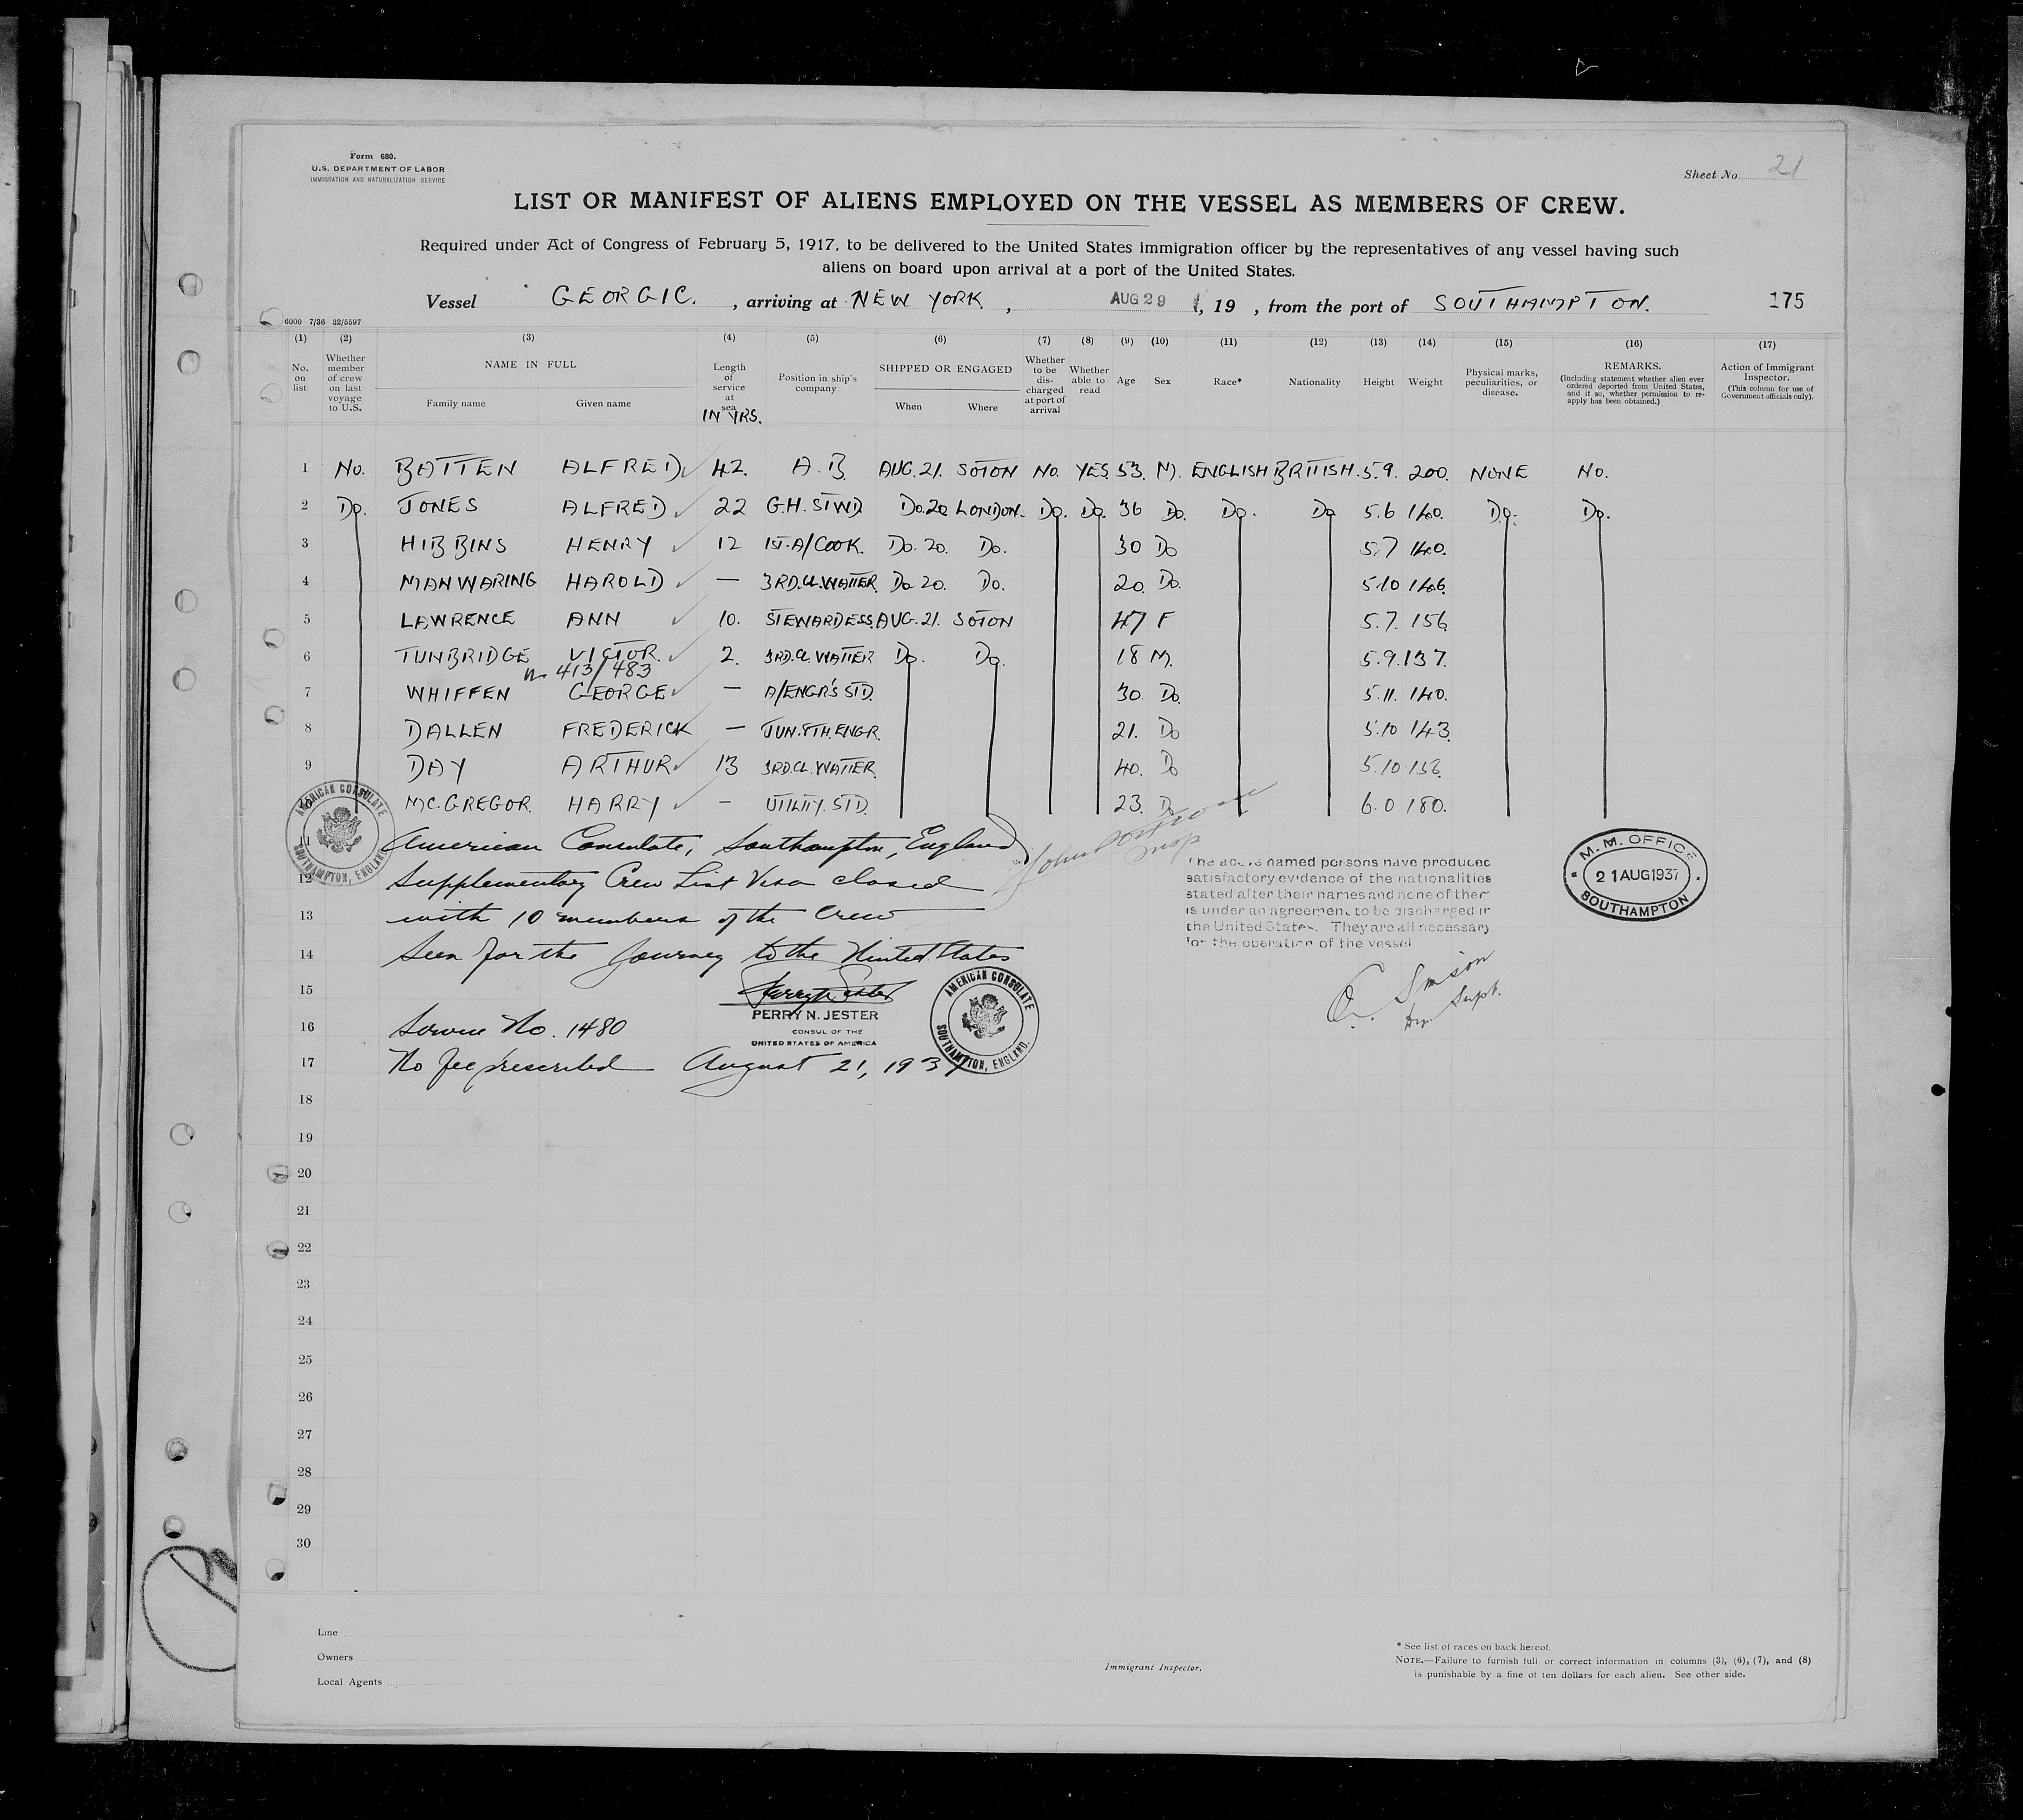 Form 680.
U.S. DEPARTMENT OF LABOR
IMMIGRATION AND NATURALIZATION SERVICE
Sheet No. 21
LIST OR MANIFEST OF ALIENS EMPLOYED ON THE VESSEL AS MEMBERS OF CREW.
Required under Act of Congress of February 5, 1917, to be delivered to the United States immigration officer by the representatives of any vessel having such
aliens on board upon arrival at a port of the United States.
Vessel GEORGIC. , arriving at NEW YORK , AUG 29 , 19 , from the port of SOUTHAMPTON. 175
6000 7/36 32/5597
(1) (2) (3) (4) (5) (6) (7) (8) (9) (10) (11) (12) (13) (14) (15) (16) (17)
No. on list
Whether member of crew on last voyage to U.S.
NAME IN FULL
Family name Given name
Length of service at sea IN YRS.
Position in ship's company
SHIPPED OR ENGAGED
When Where
Whether to be discharged at port of arrival
Whether able to read
Age Sex Race* Nationality Height Weight
Physical marks, peculiarities, or disease.
REMARKS.
(Including statement whether alien ever ordered deported from United States, and if so, whether permission to re-apply has been obtained.)
Action of Immigrant Inspector.
(This column for use of Government officials only).
1 No. BATTEN ALFRED 42. A.B. AUG. 21. SOTON No. YES. 53. M. ENGLISH BRITISH. 5.9. 200. NONE No.
2 Do. JONES ALFRED 22 G.H. STWD Do. 20 LONDON. Do. Do. 36 Do. Do. Do 5.6 140. Do. Do.
3 HIBBINS HENRY 12 1ST. A/COOK. Do. 20. Do. 30 Do 5.7 140.
4 MANWARING HAROLD — 3RD.CL.WAITER. Do 20. Do. 20. Do. 5.10 146.
5 LAWRENCE ANN 10. STEWARDESS. AUG. 21. SOTON 47 F 5.7. 156
6 TUNBRIDGE VICTOR. 2. 3RD.CL. WAITER Do. Do. 18 M. 5.9. 137.
413/483
7 WHIFFEN GEORGE — A/ENGR'S STD. 30. Do. 5.11. 140.
8 DALLEN FREDERICK — JUN. 8TH. ENGR. 21. Do 5.10 143.
9 DAY ARTHUR 13 3RD.CL. WAITER. 40. Do 5.10 156.
10 MC.GREGOR. HARRY — UTILITY. STD. 23. Do 6.0 180.
AMERICAN CONSULATE
SOUTHAMPTON, ENGLAND
11 American Consulate, Southampton, England
12 Supplementary Crew List Visa closed
13 with 10 members of the Crew
14 Seen for the journey to the United States
15
PERRY N. JESTER
CONSUL OF THE
UNITED STATES OF AMERICA
16 Service No. 1480
17 No fee prescribed August 21, 1937
AMERICAN CONSULATE
SOUTHAMPTON, ENGLAND.
Insp
The above named persons have produced
satisfactory evidence of the nationalities
stated after their names and none of them
is under an agreement to be discharged in
the United States. They are all necessary
for the operation of the vessel
M. M. OFFICE
21 AUG 1937
SOUTHAMPTON
Supt.
18
19
20
21
22
23
24
25
26
27
28
29
30
Line
Owners
Local Agents
Immigrant Inspector.
* See list of races on back hereof.
NOTE.—Failure to furnish full or correct information in columns (3), (6), (7), and (8)
is punishable by a fine of ten dollars for each alien. See other side.